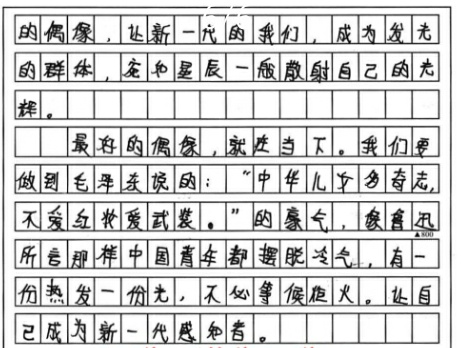 的偶像，让新一代的我们，成为发光
的群体，宛如星辰一般散射自己的光
辉。
最好的偶像，就在当下。我们要
做到毛泽东说的：“中华儿女多奇志，
不爱红妆爱武装。”的豪气，像鲁迅
▲800
所言那样中国青年都摆脱冷气，有一
份热发一份光，不必等候炬火。让自
己成为新一代感知者。